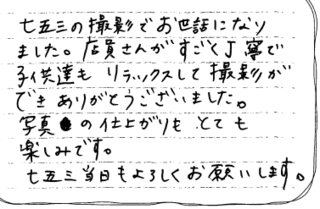 七五三の撮影でお世話になり
ました。店員さんがすごく丁寧で
子供達も リラックスして撮影が
でき ありがとうございました。
写真 の仕上がりも とても
楽しみです。
七五三当日もよろしくお願いします。